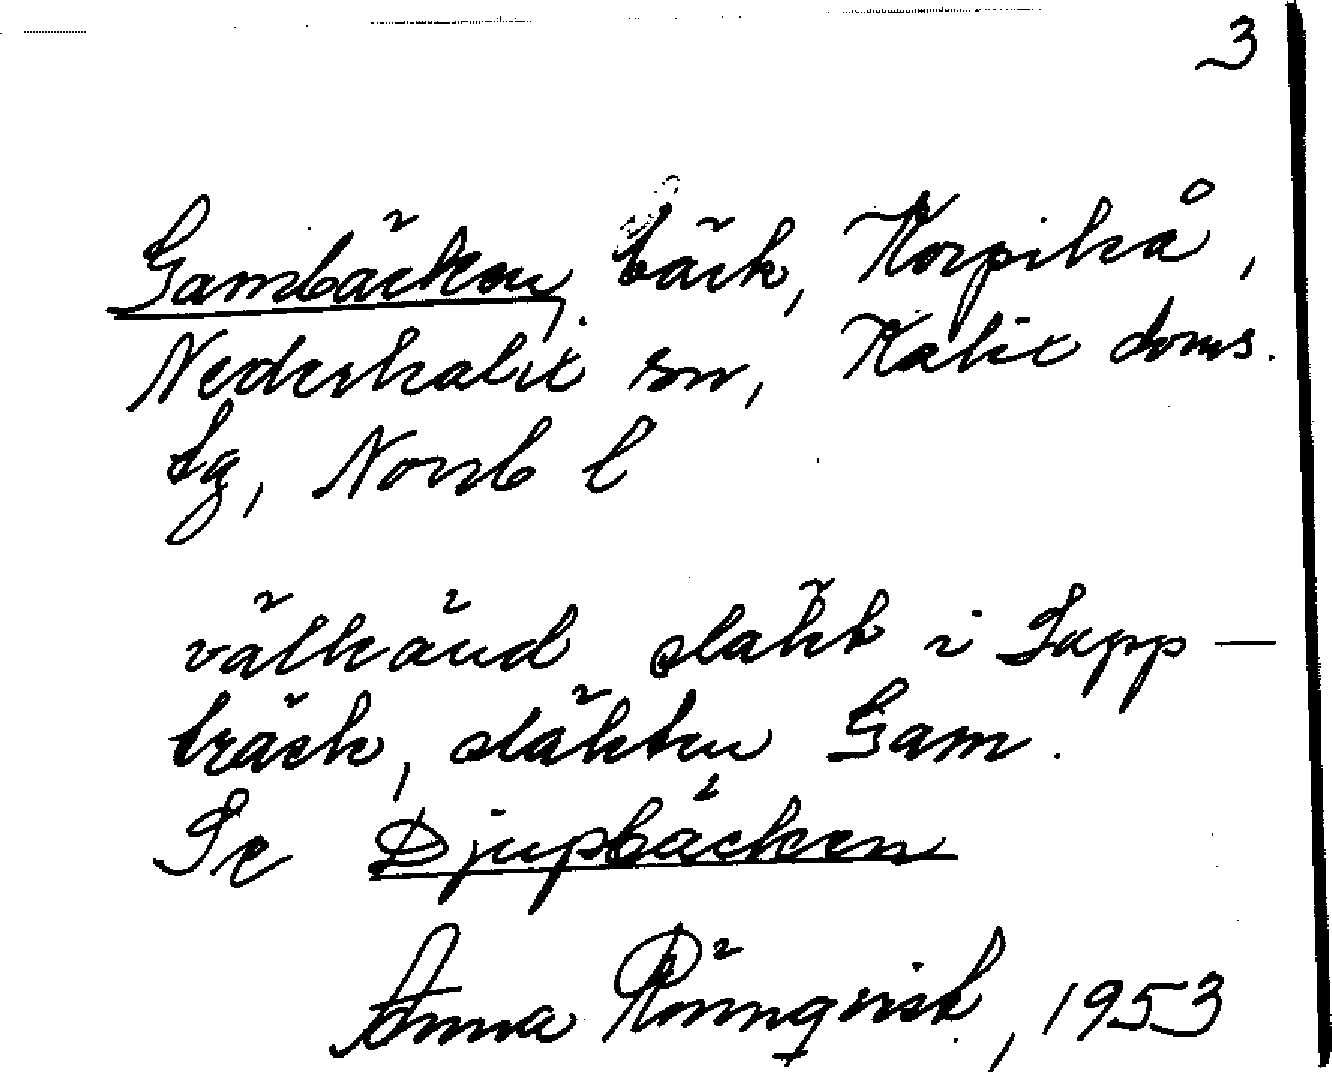 3
Gambäcken, bäck, Korpikå,
Nederkalix sn, Kalix doms.
lg, Norrb l
välkänd släkt i Lapp-
träsk, släkten Gam.
Se Djupbäcken
Anna Rönnqvist, 1953